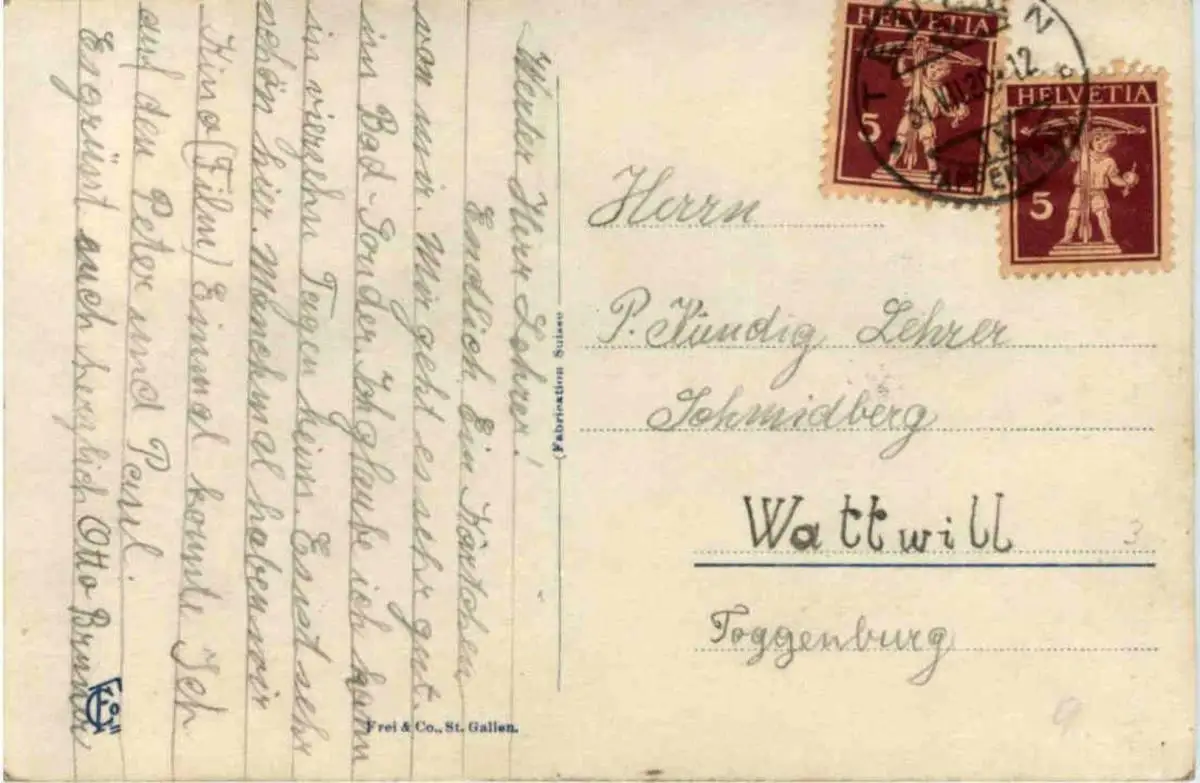 Werter Herr Lehrer!
Endlich Ein Kärtchen
von mir. Mir geht es sehr gut.
im Bad-Sonder. Ich glaube ich kann
in vierzehn Tagen heim. Es ist sehr
schön hier. Manchmal haben wir
Kino (Film) Einmal konnte Ich
auf den Peter und Paul.
Es grüsst euch herzlich Otto Brunner
(Fabrication Suisse
Frei & Co., St. Gallen.
HELVETIA
5
HELVETIA
5
Herrn
P. Kündig Lehrer
Schmidberg
Wattwill
Toggenburg
3
9.